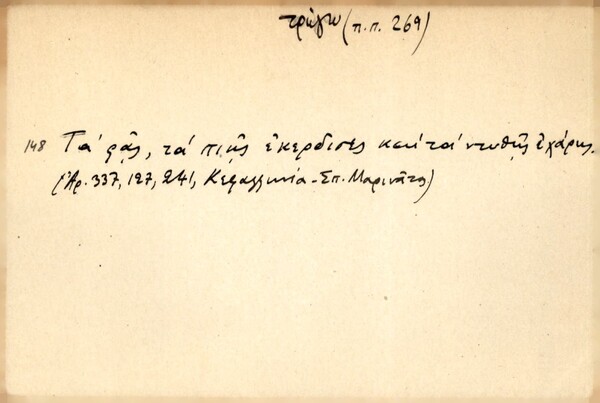 τρώγω (π.π. 269)
148 Τα' φᾷς, τα' πιῇς ἐκέρδισες και τα' ντυθῇς ἐχάρης.
(Ἀρ. 337, 127, 241, Κεφαλληνία - Σπ. Μαρινᾶτος)